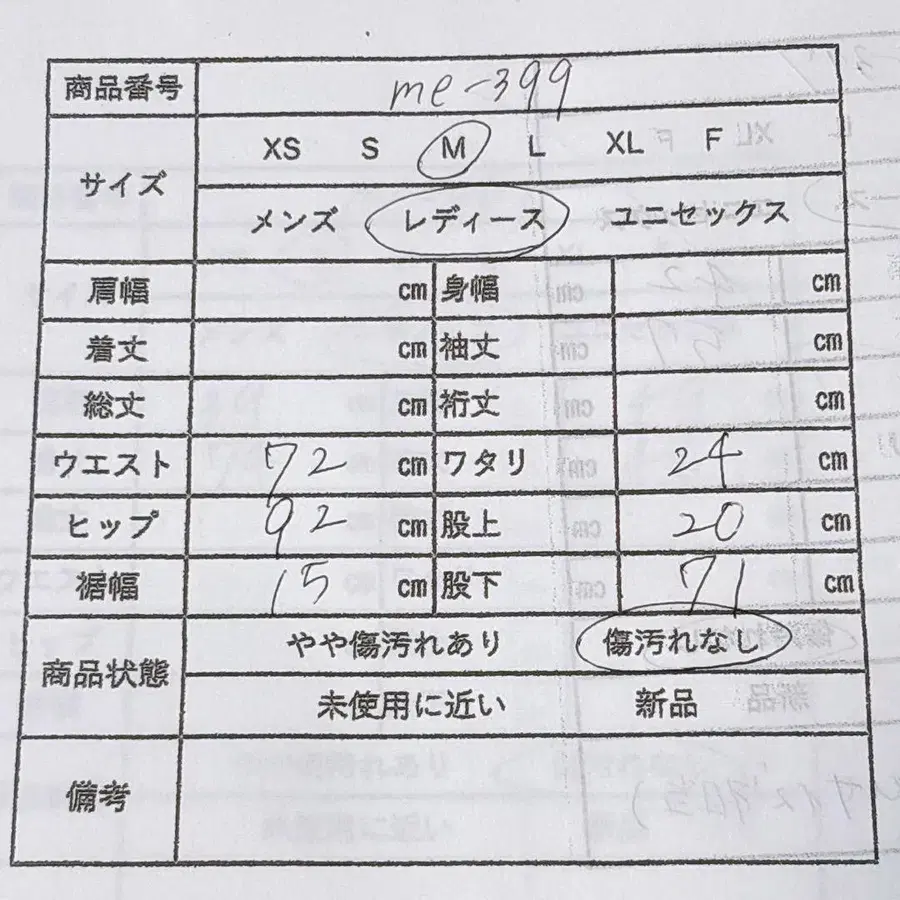 商品番号 me-399
サイズ XS S M L XL F
メンズ レディース ユニセックス
肩幅 cm 身幅 cm
着丈 cm 袖丈 cm
総丈 cm 裄丈 cm
ウエスト 72 cm ワタリ 24 cm
ヒップ 92 cm 股上 20 cm
裾幅 15 cm 股下 71 cm
商品状態 やや傷汚れあり 傷汚れなし
未使用に近い 新品
備考